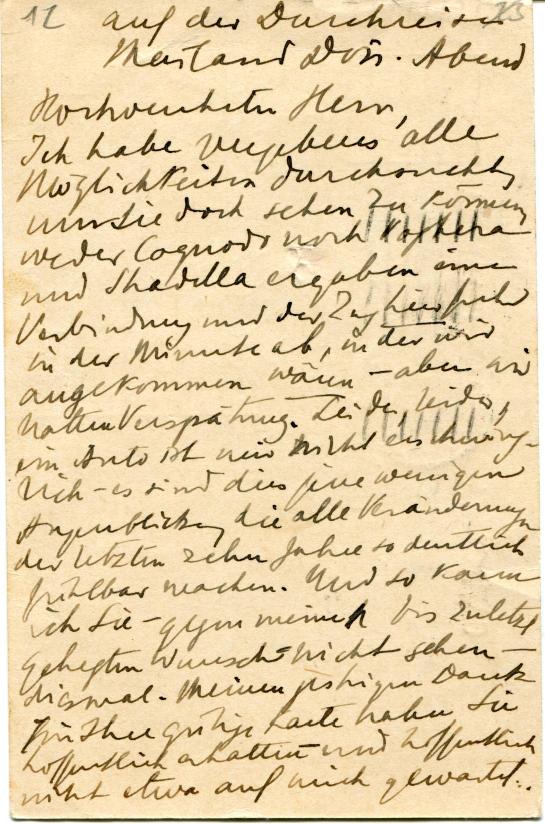 12 23
auf der Durchreise
Mailand Don. Abend
Hochverehrter Herr,
Ich habe vergebens alle
Möglichkeiten durchsucht,
um Sie doch sehen zu können,
weder Codogno noch Voghera
und Stradella ergaben eine
Verbindung und der Zug hier fuhr
in der Minute ab, in der wir
angekommen wären – aber wir
hatten Verspätung. Leider, leider,
ein Auto ist mir nicht erschwing-
lich – es sind dies jene wenigen
Augenblicke, die alle Veränderungen
der letzten zehn Jahre so deutlich
fühlbar machen. Und so kann
ich Sie – gegen meinen bis zuletzt
gehegten Wunsch – nicht sehen –
diesmal. Meinen gestrigen Dank
für Ihre gütige Karte haben Sie
hoffentlich erhalten und hoffentlich
nicht etwa auf mich gewartet..